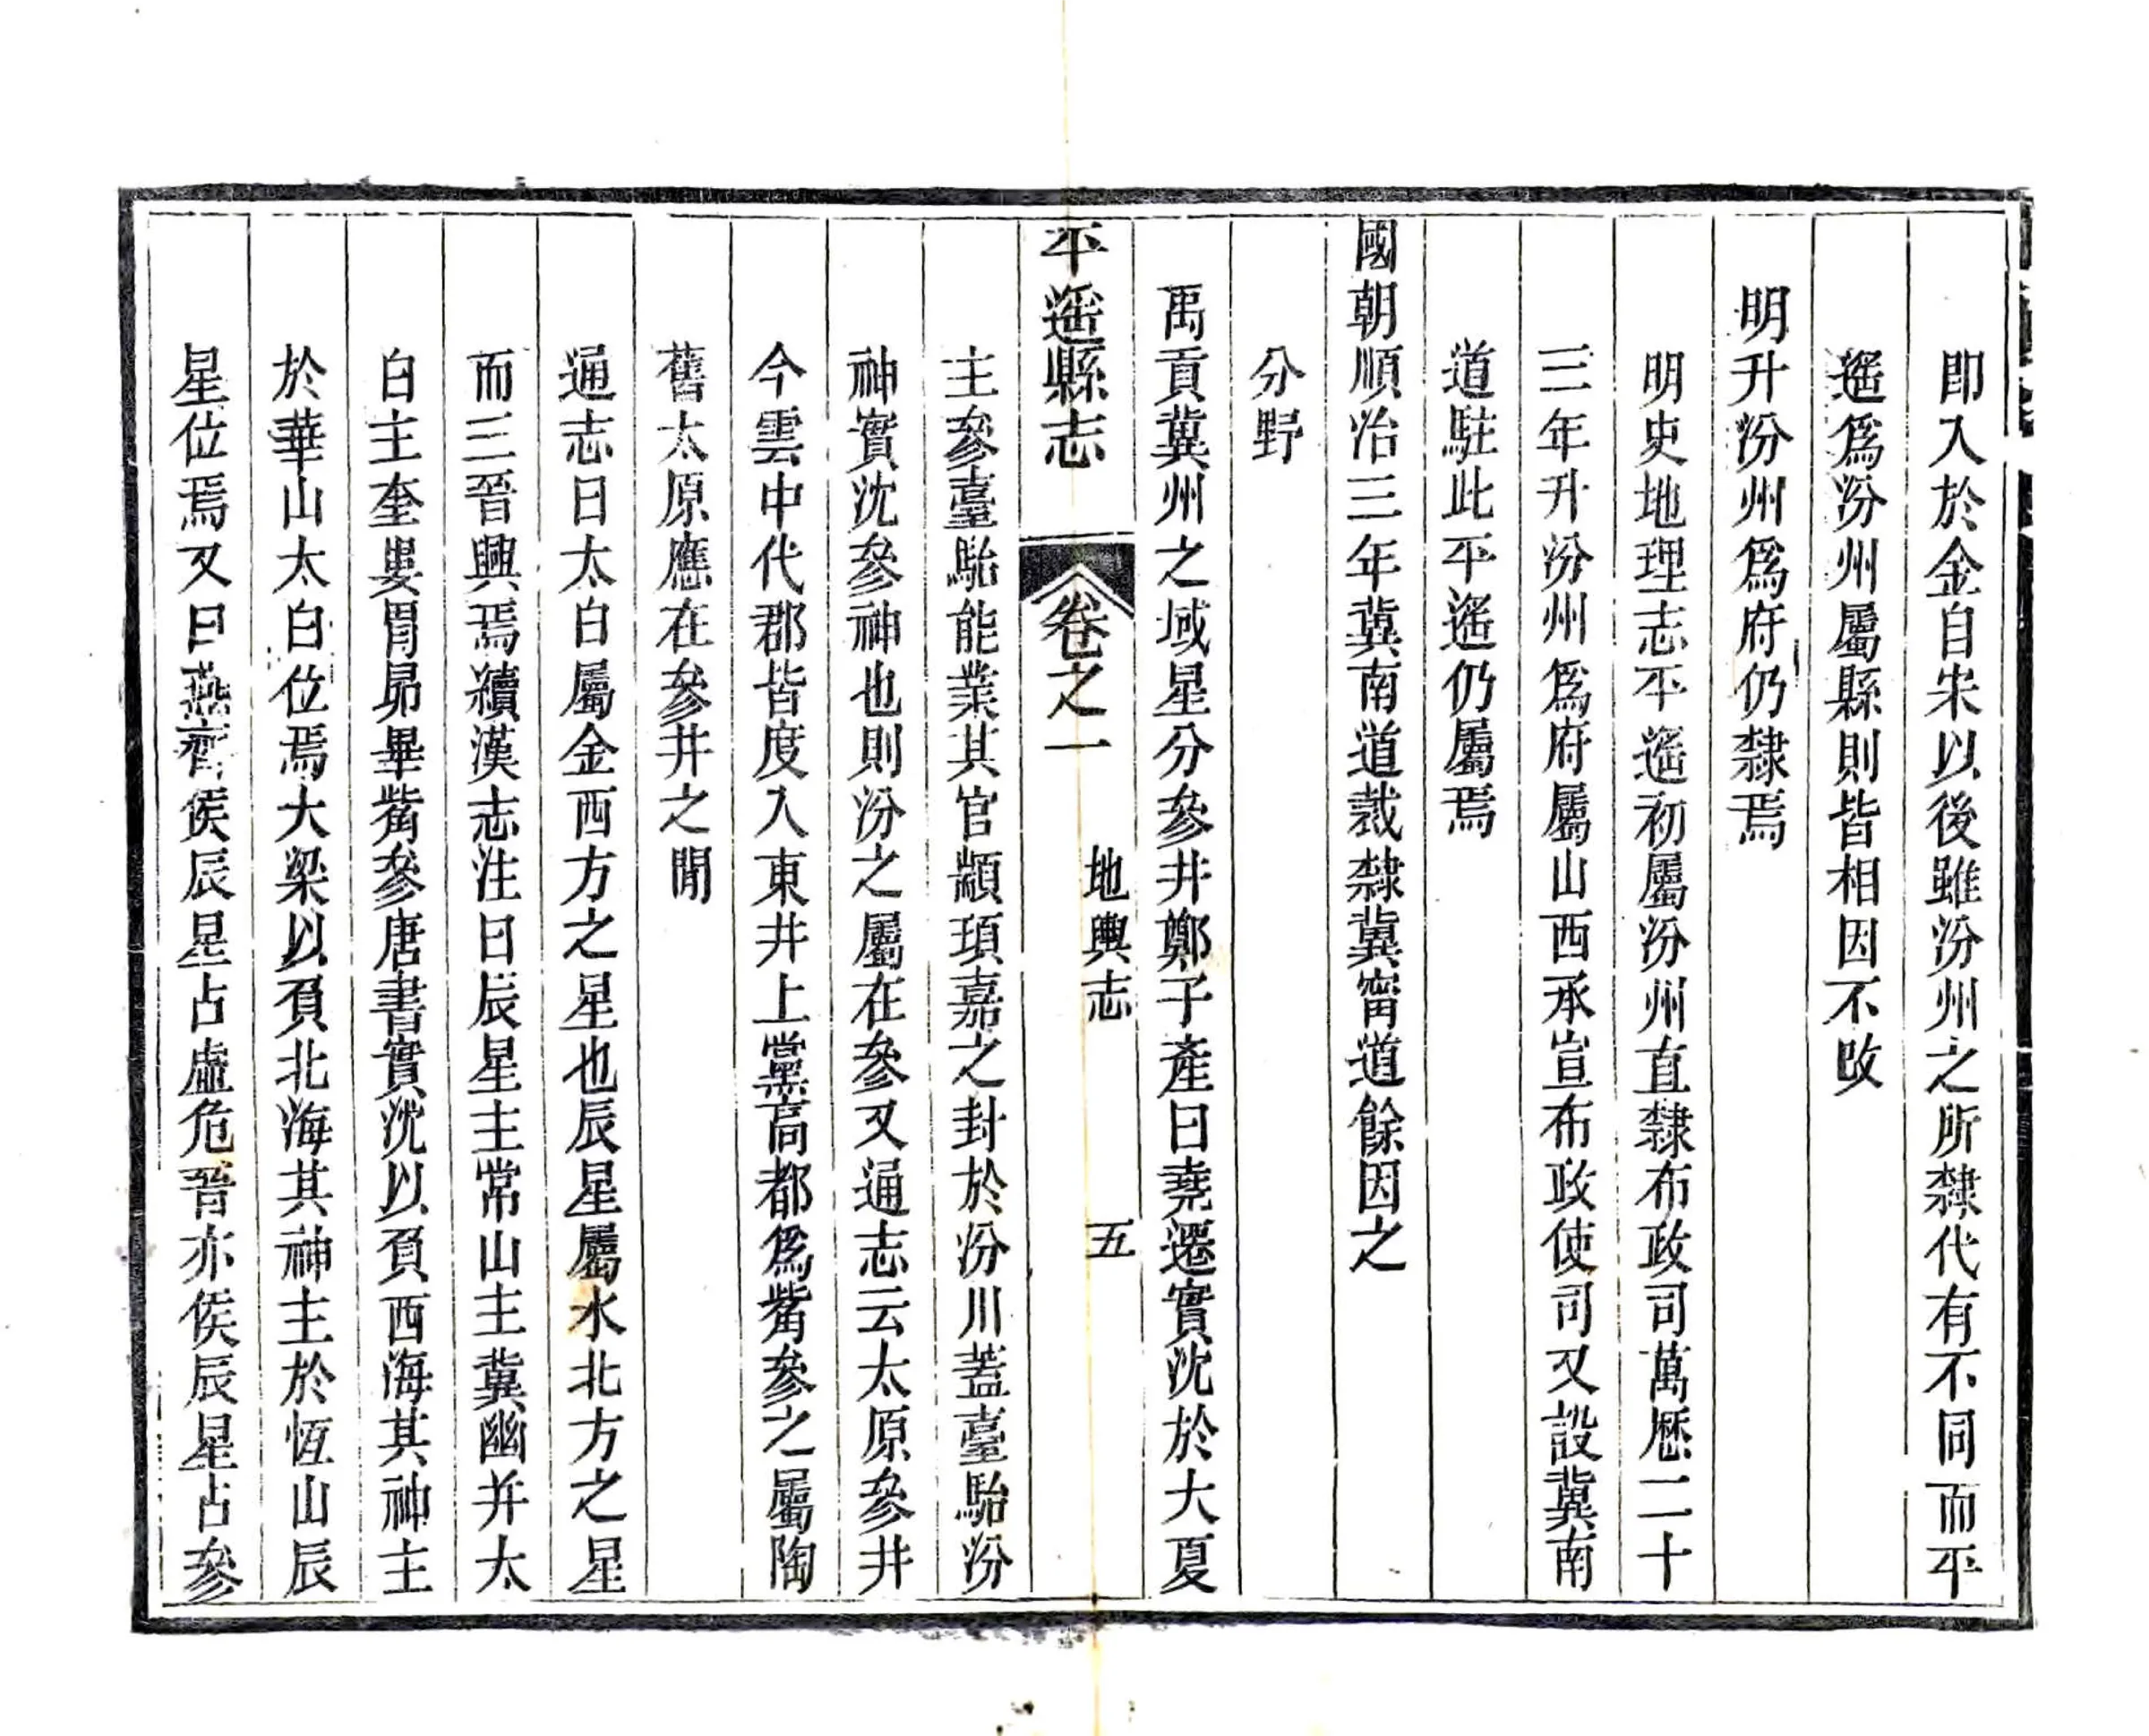 卽入於金自宋以後雖汾州之所隸代有不同而平
遙爲汾州屬縣則皆相因不改
明升汾州爲府仍隸焉
明史地理志平遙初屬汾州直隸布政司萬歷二十
三年升汾州爲府屬山西承宣布政使司又設冀南
道駐此平遙仍屬焉
國朝順治三年冀南道裁隸冀甯道餘因之
分野
禹貢冀州之域星分參井鄭子產曰堯遷實沈於大夏
平遙縣志 卷之一 地輿志 五
主參臺駘能業其官顓頊嘉之封於汾川蓋臺駘汾
神實沈參神也則汾之屬在參又通志云太原參井
今雲中代郡皆度入東井上黨高都爲觜參之屬陶
舊太原應在參井之閒
通志曰太白屬金西方之星也辰星屬水北方之星
而三晉興焉續漢志注曰辰星主常山主冀幽幷太
白主奎婁胃昴畢觜參唐書實沈以負西海其神主
於華山太白位焉大梁以負北海其神主於恆山辰
星位焉又曰燕齊侯辰星占虛危晉亦侯辰星占參